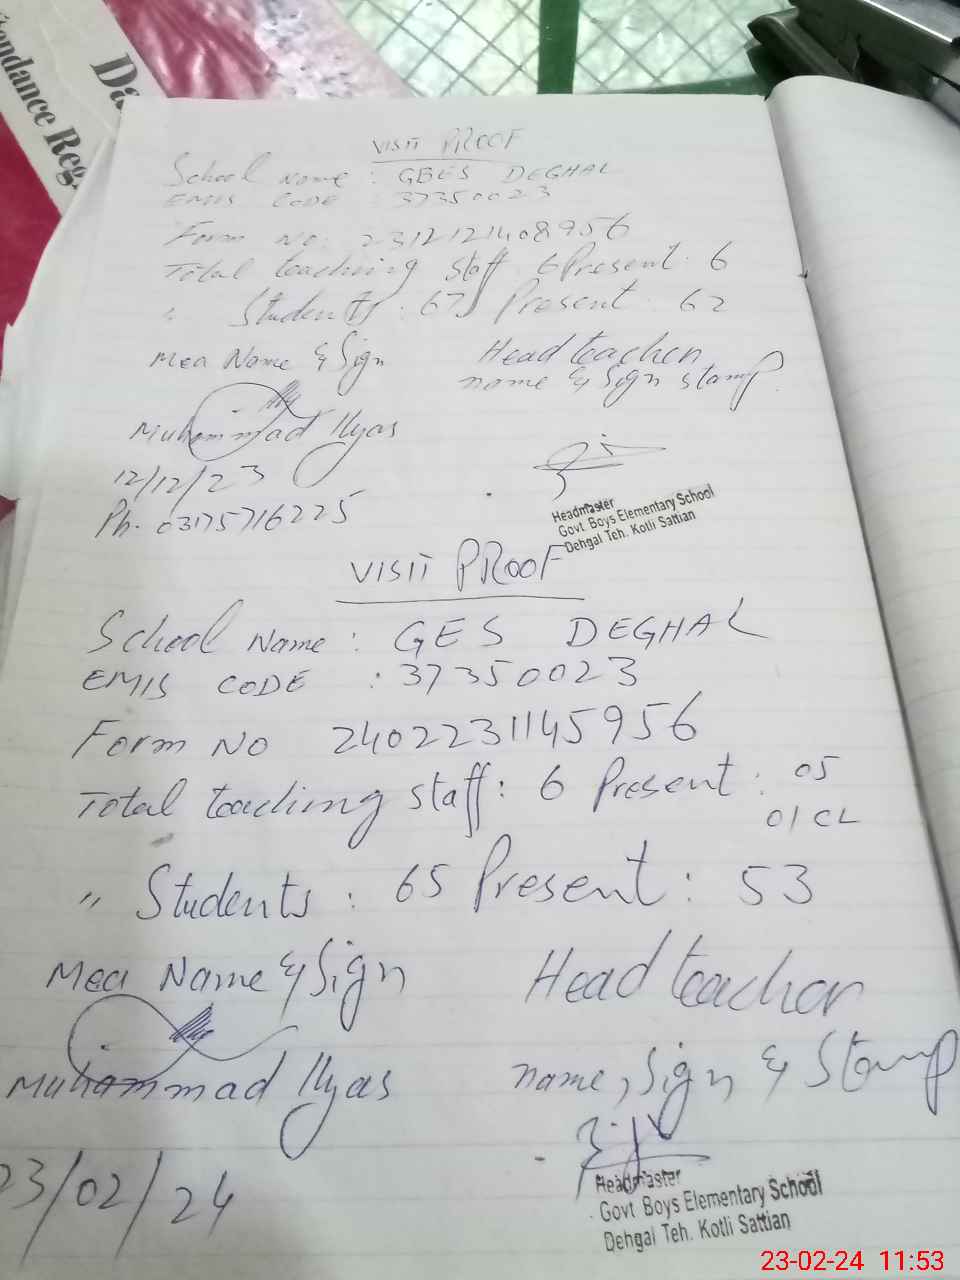 Attendance Reg
Da
VISIT PROOF
School Name : GBES DEGHAL
EMIS CODE : 37350023
Form No: 2312121408956
Total teaching staff 6 Present: 6
" Students : 67 Present : 62
Mea Name & Sign
Head teacher
name & Sign stamp.
Muhammad Ilyas
12/12/23
Ph. 03175716225
Headmaster
Govt Boys Elementary School
Dehgal Teh. Kotli Sattian
VISIT PROOF
School Name : GES DEGHAL
EMIS CODE : 37350023
Form No 2402231145956
Total teaching staff : 6 Present : 05
01 CL
" Students : 65 Present : 53
Mea Name & Sign
Head teacher
name, Sign & Stamp
Muhammad Ilyas
23/02/24
Headmaster
Govt Boys Elementary School
Dehgal Teh. Kotli Sattian
23-02-24 11:53